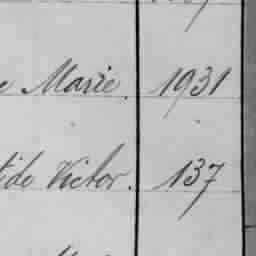 Marie. 1931
Victor. 137